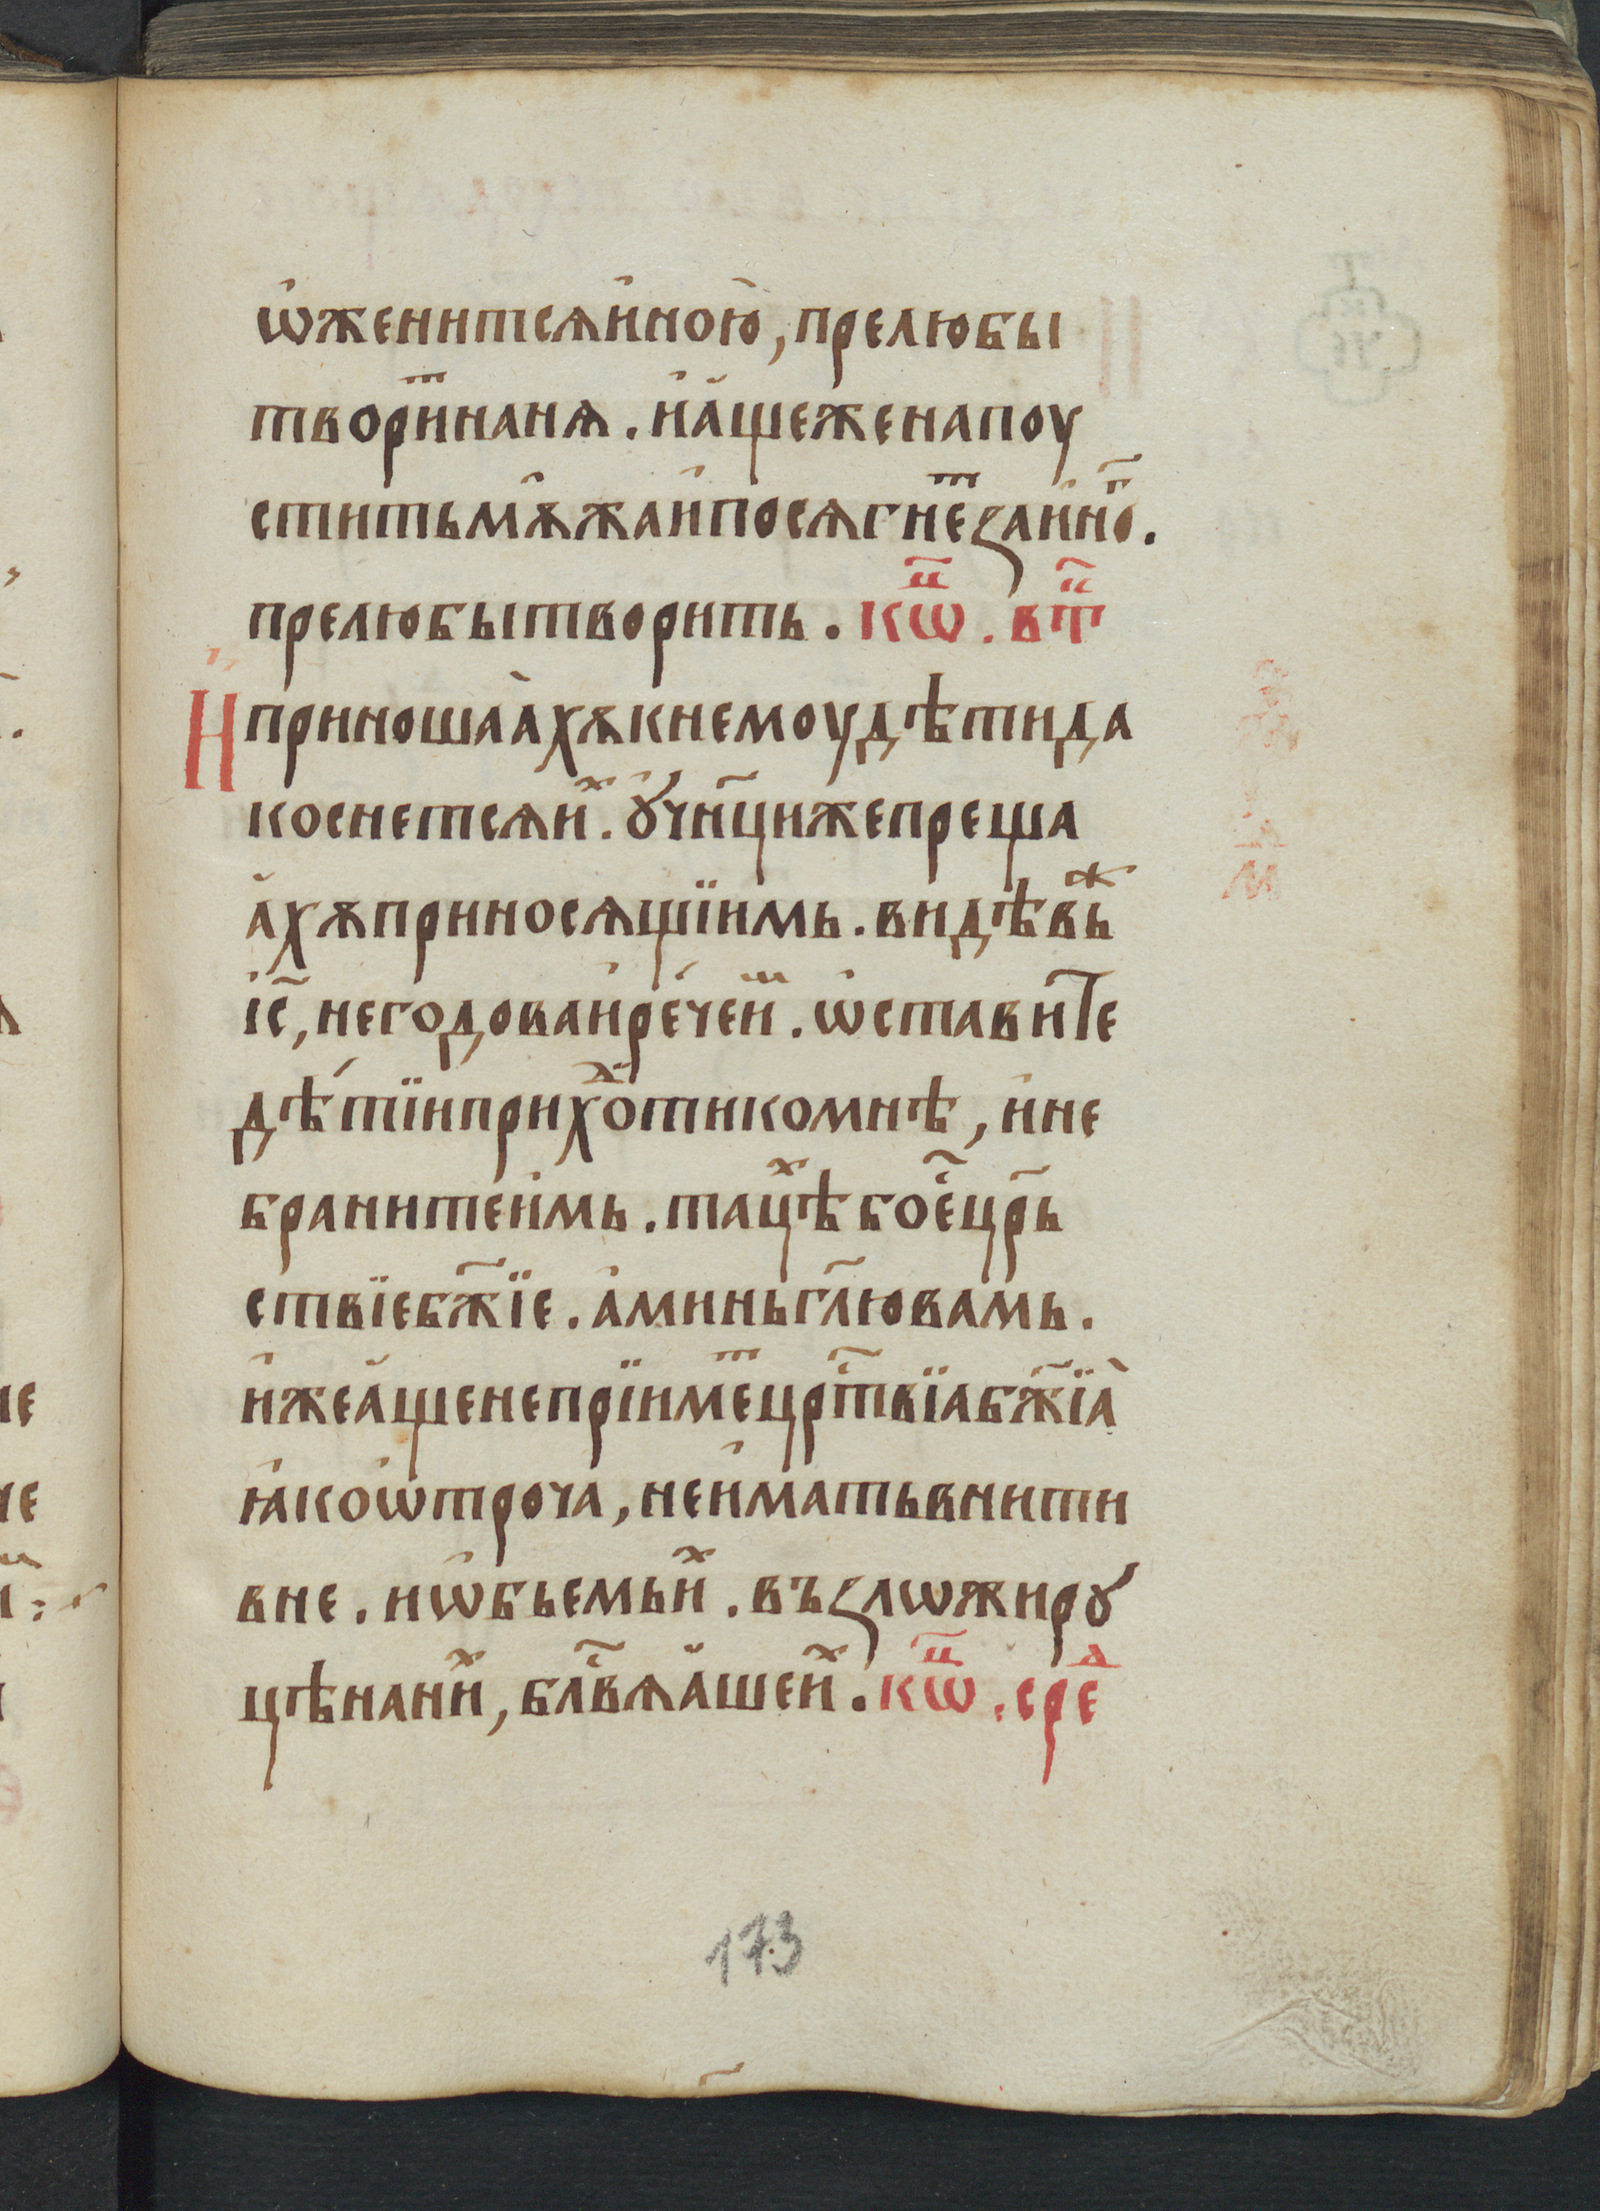 ѡ҆женитсѧи҆ною҆, прелюбы
твориⷮнанѧ. и҆а҆щеженапоу
ститьмѫжаи҆посѧгнеⷮꙁаи҆ноⷢ҇.
прелюбытворить. кѡⷰ҇. вⷮⷡ҇
И҆приношаа҆хѫкнемоудѣтида
коснетсѧиⷯ. ꙋ҆чн҃цижепреща
а҆хѫприносѧщїимь. видѣвьⷤ
і҆с҃, негодоваи҆речеиⷨ. ѡ҆ставите
дѣтїиприхоⷣтикомнѣ, ине
бранитеи҆мь. тацѣⷯбоеⷭ҇цр҃ь
ствїебж҃їе. а҆миньгл҃ювамь.
и҆жеа҆щенепрїимеⷮцрⷭ҇твїабж҃їа҆
ꙗ҆коѡ҆троча, неи҆матьвнити
вне. иѡ҆бьемьиⷯ. въꙁлѡжирꙋ
цѣнаниⷯ, блⷭ҇вѧа҆шеиⷯ. кѡⷰ҇. среⷣ
173